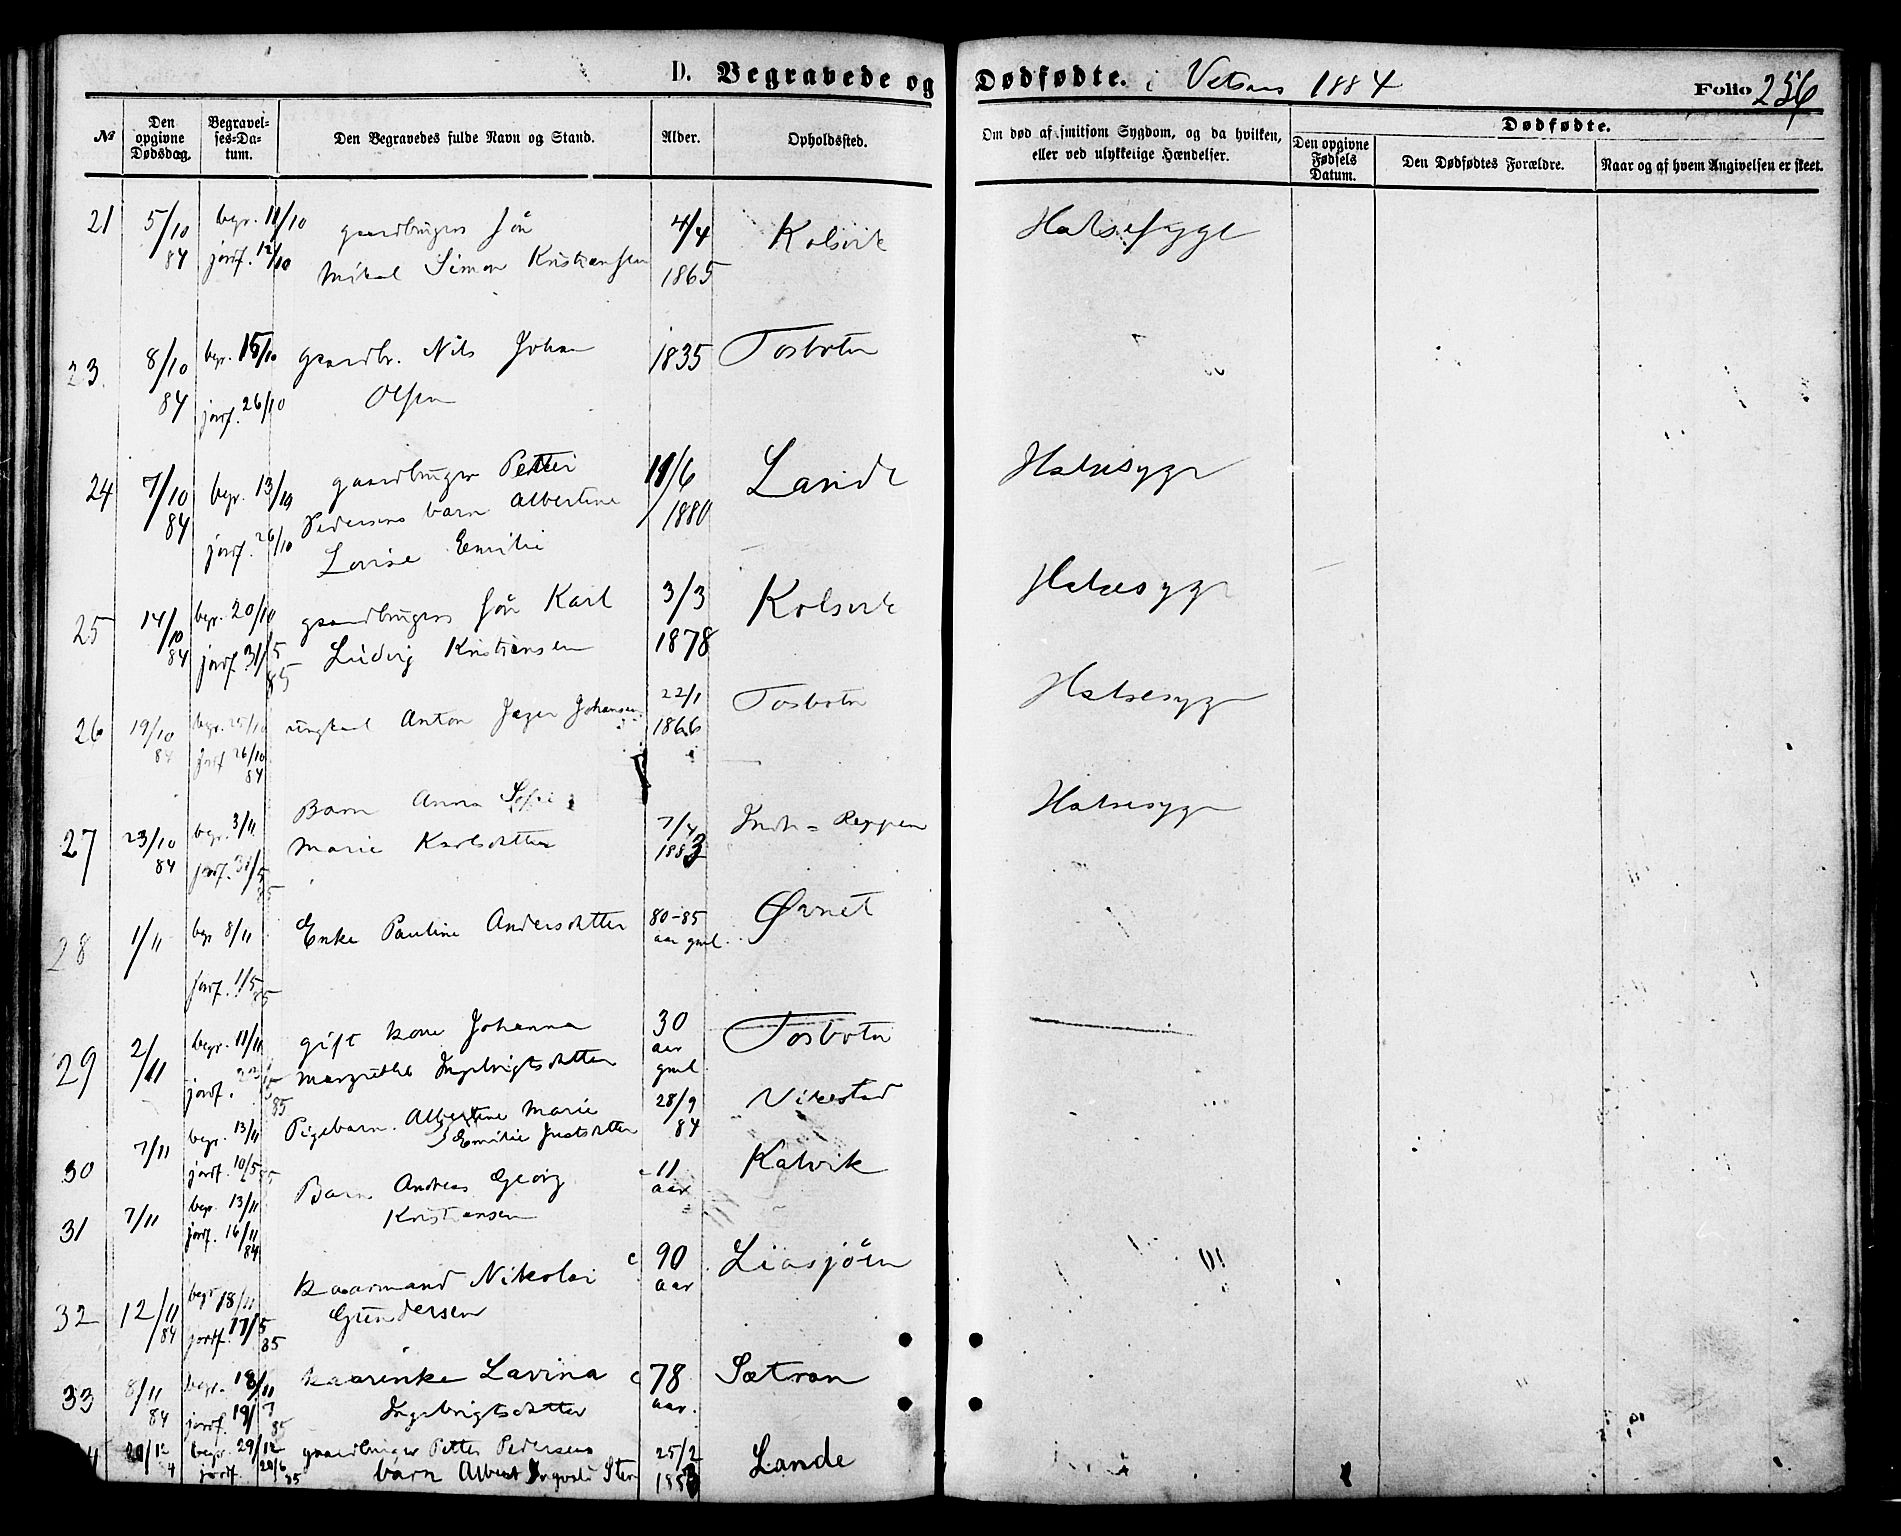 D. Begravede og Dødfødte. i Vetsans 1884
Folio 256
№
Den opgivne Dødsdag.
Begravelses-Datum.
Den Begravedes fulde Navn og Stand.
Alder.
Opholdssted.
Om død af smitsom Sygdom, og da hvilken, eller ved ulykkelige Hændelser.
Dødfødte.
Den opgivne Fødsels Datum.
Den Dødfødtes Forældre.
Naar og af hvem Angivelsen er skeet.
21 5/10 84 begr. 11/10 jordf. 12/10 gaardbrugers søn 4/4 1865 Kolsvik Halsesyge
Mikal Simon Kristiansen
23. 8/10 84 begr. 15/10 jordf. 26/10 gaardbr. Nils Johan 1835 Tosbotn
Olsen
24 7/10 84 begr. 13/10 jordf. 26/10 gaardbruger Petter 11/6 1880 Lande Halsesyge
Pedersens barn Albertine
Lovise Emilie
25 14/10 84 begr. 20/10 jordf. 31/5 85 gaardbrugers søn Karl 3/3 1878 Kolsvik Halsesyge
Ludvig Kristiansen
26 19/10 84 begr. 25/10 jordf. 26/10 84 ungkarl Anton Jæger Johansen 22/1 1866 Tosbotn Halsesyge
27 23/10 84 begr. 3/11 jordf. 31/5 85 Barn Anna Sofie 7/4 1883 Indr = Reppen Halsesyge
Marie Karlsdtter
28 1/11 begr. 8/11 jordf. 1/5 85 Enke Pauline Andersdtter 80-85 aar gml. Øvnet
29 2/11 begr. 11/11 jordf. 85 gift kone Johanna 30 aar gml. Tosbotn
Margrethe Ingebrigtsdtter
30 7/11 begr. 13/11 jordf. 10/5 85 Pigebarn Albertine Marie 28/9 84 Vikestad
Emilie Justsdtter
31 7/11 begr. 13/11 jordf. 16/11 84 Barn Andreas Georg c 11 aar Kalvik
Kristiansen
32 12/11 84 begr. 18/11 jordf. 17/5 85 kaarmand Nikolai c 90 aar Liasjøen
Gundersen
33 8/11 84 begr. 18/11 jordf. 19/7 85 kaarenke Lavina c 78 aar. Sætran
Ingebrigtsdtter
20/12 begr. 29/12 jordf. 20/6 85 gaardbruger Petter Pedersens 25/2 1883 Lande
barn Albert Ingvald Sten